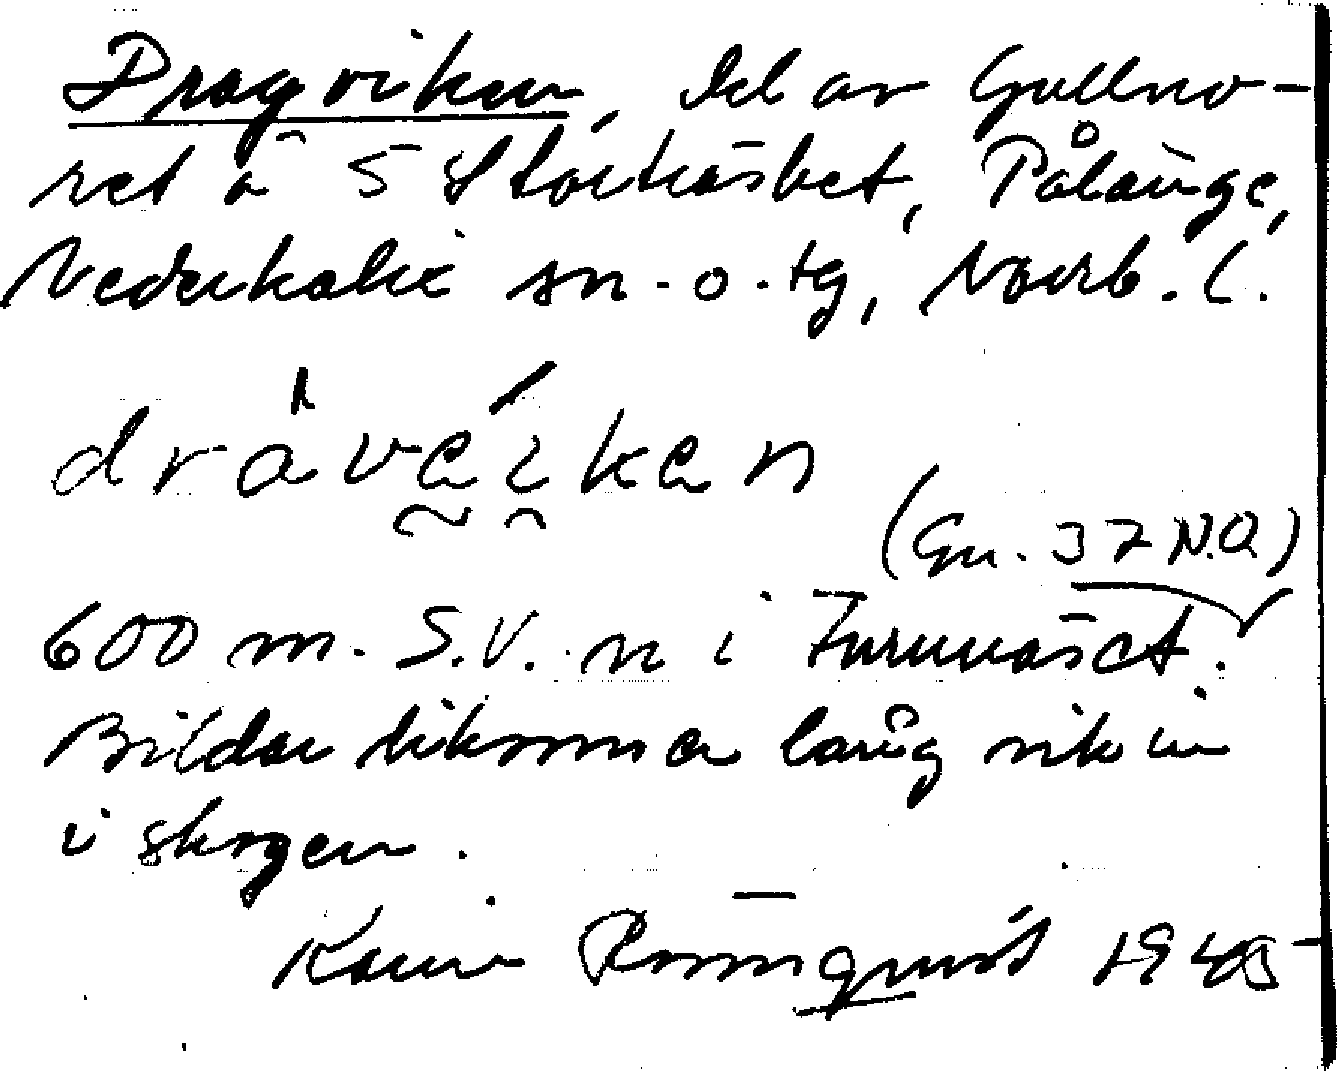 Dragviken, del av Gullno-
ret å S Storträsket, Pålänge,
Nederkalix sn. o. tg, Norrb. l.
dråveiken
(Gn. 37 N.O)
600 m. S.V. n i Furunäset.
Bildar liksom en lång vik in
i skogen.
Karin Rönnquist 1945